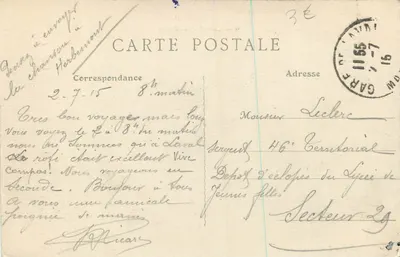 3€
CARTE POSTALE
Correspondance
Adresse
2-7-15 8h matin
Très bon voyage, mais long
vous voyez le 2 à 8h du matin
nous ne sommes qu'à Laval
Le café était excellent Vive
Nous voyageons en
Bonjour à tous
A vous une amicale
poignée de mains
Ricard
GARE DE LAVAL
11 55
2-7
15
Monsieur Leclerc
Sergent 46e Territorial
Depot d'éclopés du Lycée de
Jeunes filles
Secteur 29